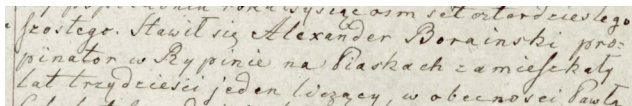 roku tysiąc osm set czterdziestego
szostego. Stawił się Alexander Borainski pro=
pinator w Rypinie na Piaskach zamieszkały
lat trzydzieści jeden liczący, w obecności Pawła